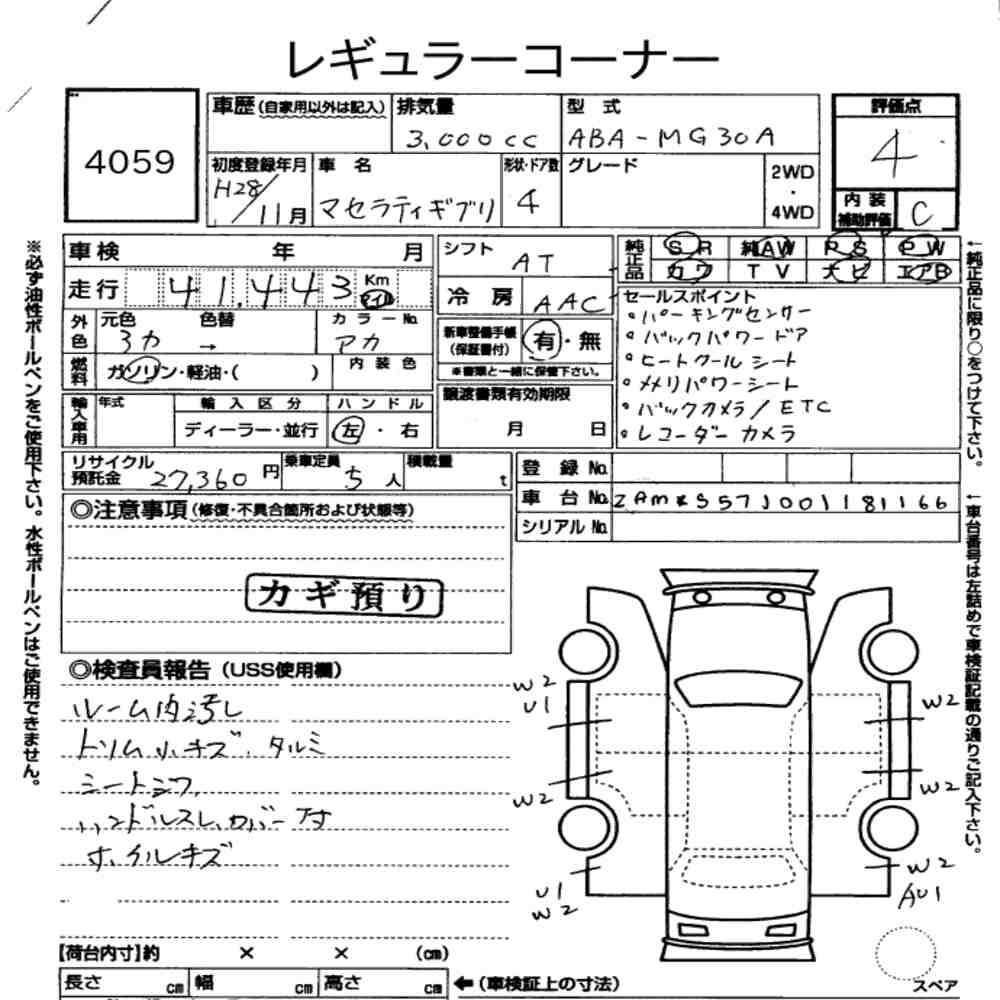 レギュラーコーナー
4059
車歴 (自家用以外は記入)
排気量
3,000cc
型式
ABA-MG30A
評価点
4
初度登録年月
H28/11月
車名
マセラティギブリ
形状・ドア数
4
グレード
2WD
・
4WD
内装
補助評価
C
※必ず油性ボールペンをご使用下さい。水性ボールペンはご使用できません。
車検 年 月
走行 41,443 Km マイル
外色 元色 3カ 色替 → カラーNo. アカ
燃料 ガソリン・軽油・( ) 内装色
輸入車用 年式 輸入区分 ハンドル
ディーラー・並行 左・右
リサイクル預託金 27,360円 乗車定員 5人 積載量 t
シフト AT
冷房 AAC
新車整備手帳 (保証書付) 有・無
※書類と一緒に保管下さい。
譲渡書類有効期限
月 日
純正品 SR 純AW PS PW
カワ TV ナビ エアB
セールスポイント
・パーキングセンサー
・バックパワードア
・ヒートクールシート
・メメリパワーシート
・バックカメラ/ETC
・レコーダーカメラ
←純正品に限り○をつけて下さい。
登録No.
車台No. ZAMXS57J001181166
シリアルNo.
←車台番号は左詰めで車検証記載の通りご記入下さい。
◎注意事項 (修復・不具合箇所および状態等)
カギ預り
◎検査員報告 (USS使用欄)
ルーム内汚し
トリム小キズ、タルミ
シートシワ
ハンドルスレ、カバー付
ホイルキズ
W2
U1
W2
U1
W2
W2
W2
W2
AU1
スペア
【荷台内寸】約 × × (cm)
長さ cm 幅 cm 高さ cm ←(車検証上の寸法)